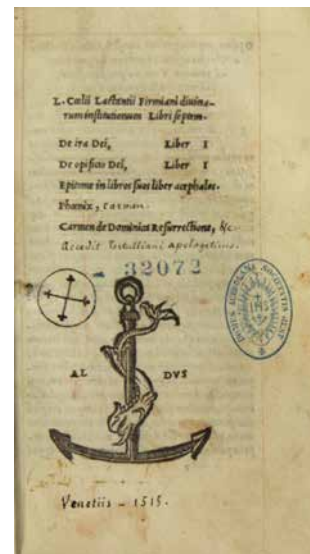 L. Cœlii Lactentii Firmiani diuina-
rum institutionum Libri septem.
De ira Dei, Liber I
De opificio Dei, Liber I
Epitome in libros suos liber acephalos.
Phœnix, Carmen.
Carmen de Dominica Resurrectione, &c
Accedit Tertulliani apologeticus.
32072
AL DVS
Venetiis - 1515.